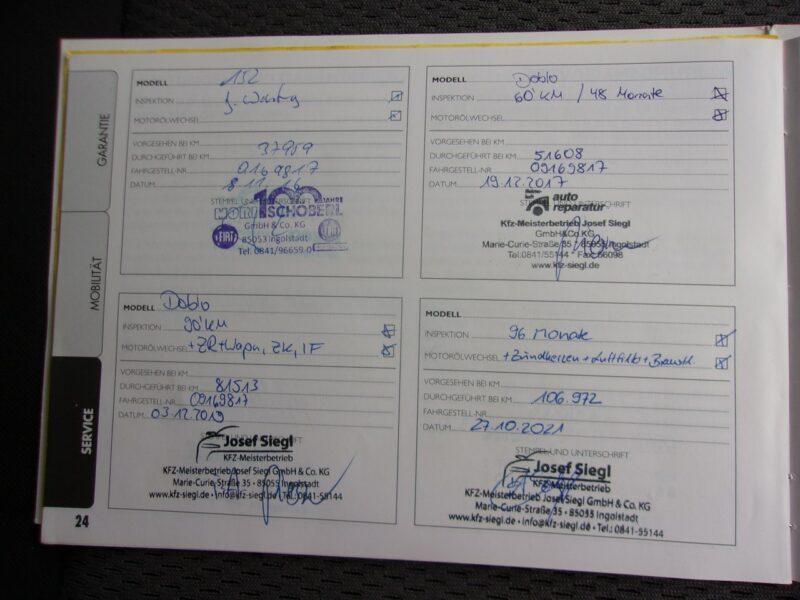 GARANTIE
MOBILITÄT
SERVICE
24
MODELL 152
INSPEKTION
MOTORÖLWECHSEL
VORGESEHEN BEI KM
DURCHGEFÜHRT BEI KM 37959
FAHRGESTELL-NR. 0169817
DATUM 8.11.16
STEMPEL UND UNTERSCHRIFT
100 JAHRE
SCHOBERL
GmbH & Co. KG
FIAT 85053 Ingolstadt
Tel. 0841/96659-0
MODELL Doblo
INSPEKTION 60'KM / 48 Monate
MOTORÖLWECHSEL
VORGESEHEN BEI KM
DURCHGEFÜHRT BEI KM 51608
FAHRGESTELL-NR. 09169817
DATUM 19.12.2017
STEMPEL UND UNTERSCHRIFT
auto
reparatur
Kfz-Meisterbetrieb Josef Siegl
GmbH & Co KG
Marie-Curie-Straße 35 · 85055 Ingolstadt
Tel:0841/55144 · Fax: 56098
www.kfz-siegl.de
MODELL Doblo
INSPEKTION 90'KM
MOTORÖLWECHSEL +ZR+Wapu, ZK, IF
VORGESEHEN BEI KM
DURCHGEFÜHRT BEI KM 81513
FAHRGESTELL-NR. 09169817
DATUM 03.12.2019
Josef Siegl
KFZ-Meisterbetrieb
KFZ-Meisterbetrieb Josef Siegl GmbH & Co. KG
Marie-Curie-Straße 35 · 85055 Ingolstadt
www.kfz-siegl.de · info@kfz-siegl.de · Tel.: 0841-55144
MODELL
INSPEKTION 96 Monate
MOTORÖLWECHSEL +Zündkerzen+Luftfilter+Bremsfl.
VORGESEHEN BEI KM
DURCHGEFÜHRT BEI KM 106.972
FAHRGESTELL-NR.
DATUM 27.10.2021
STEMPEL UND UNTERSCHRIFT
Josef Siegl
KFZ-Meisterbetrieb
KFZ-Meisterbetrieb Josef Siegl GmbH & Co. KG
Marie-Curie-Straße 35 · 85055 Ingolstadt
www.kfz-siegl.de · info@kfz-siegl.de · Tel.: 0841-55144